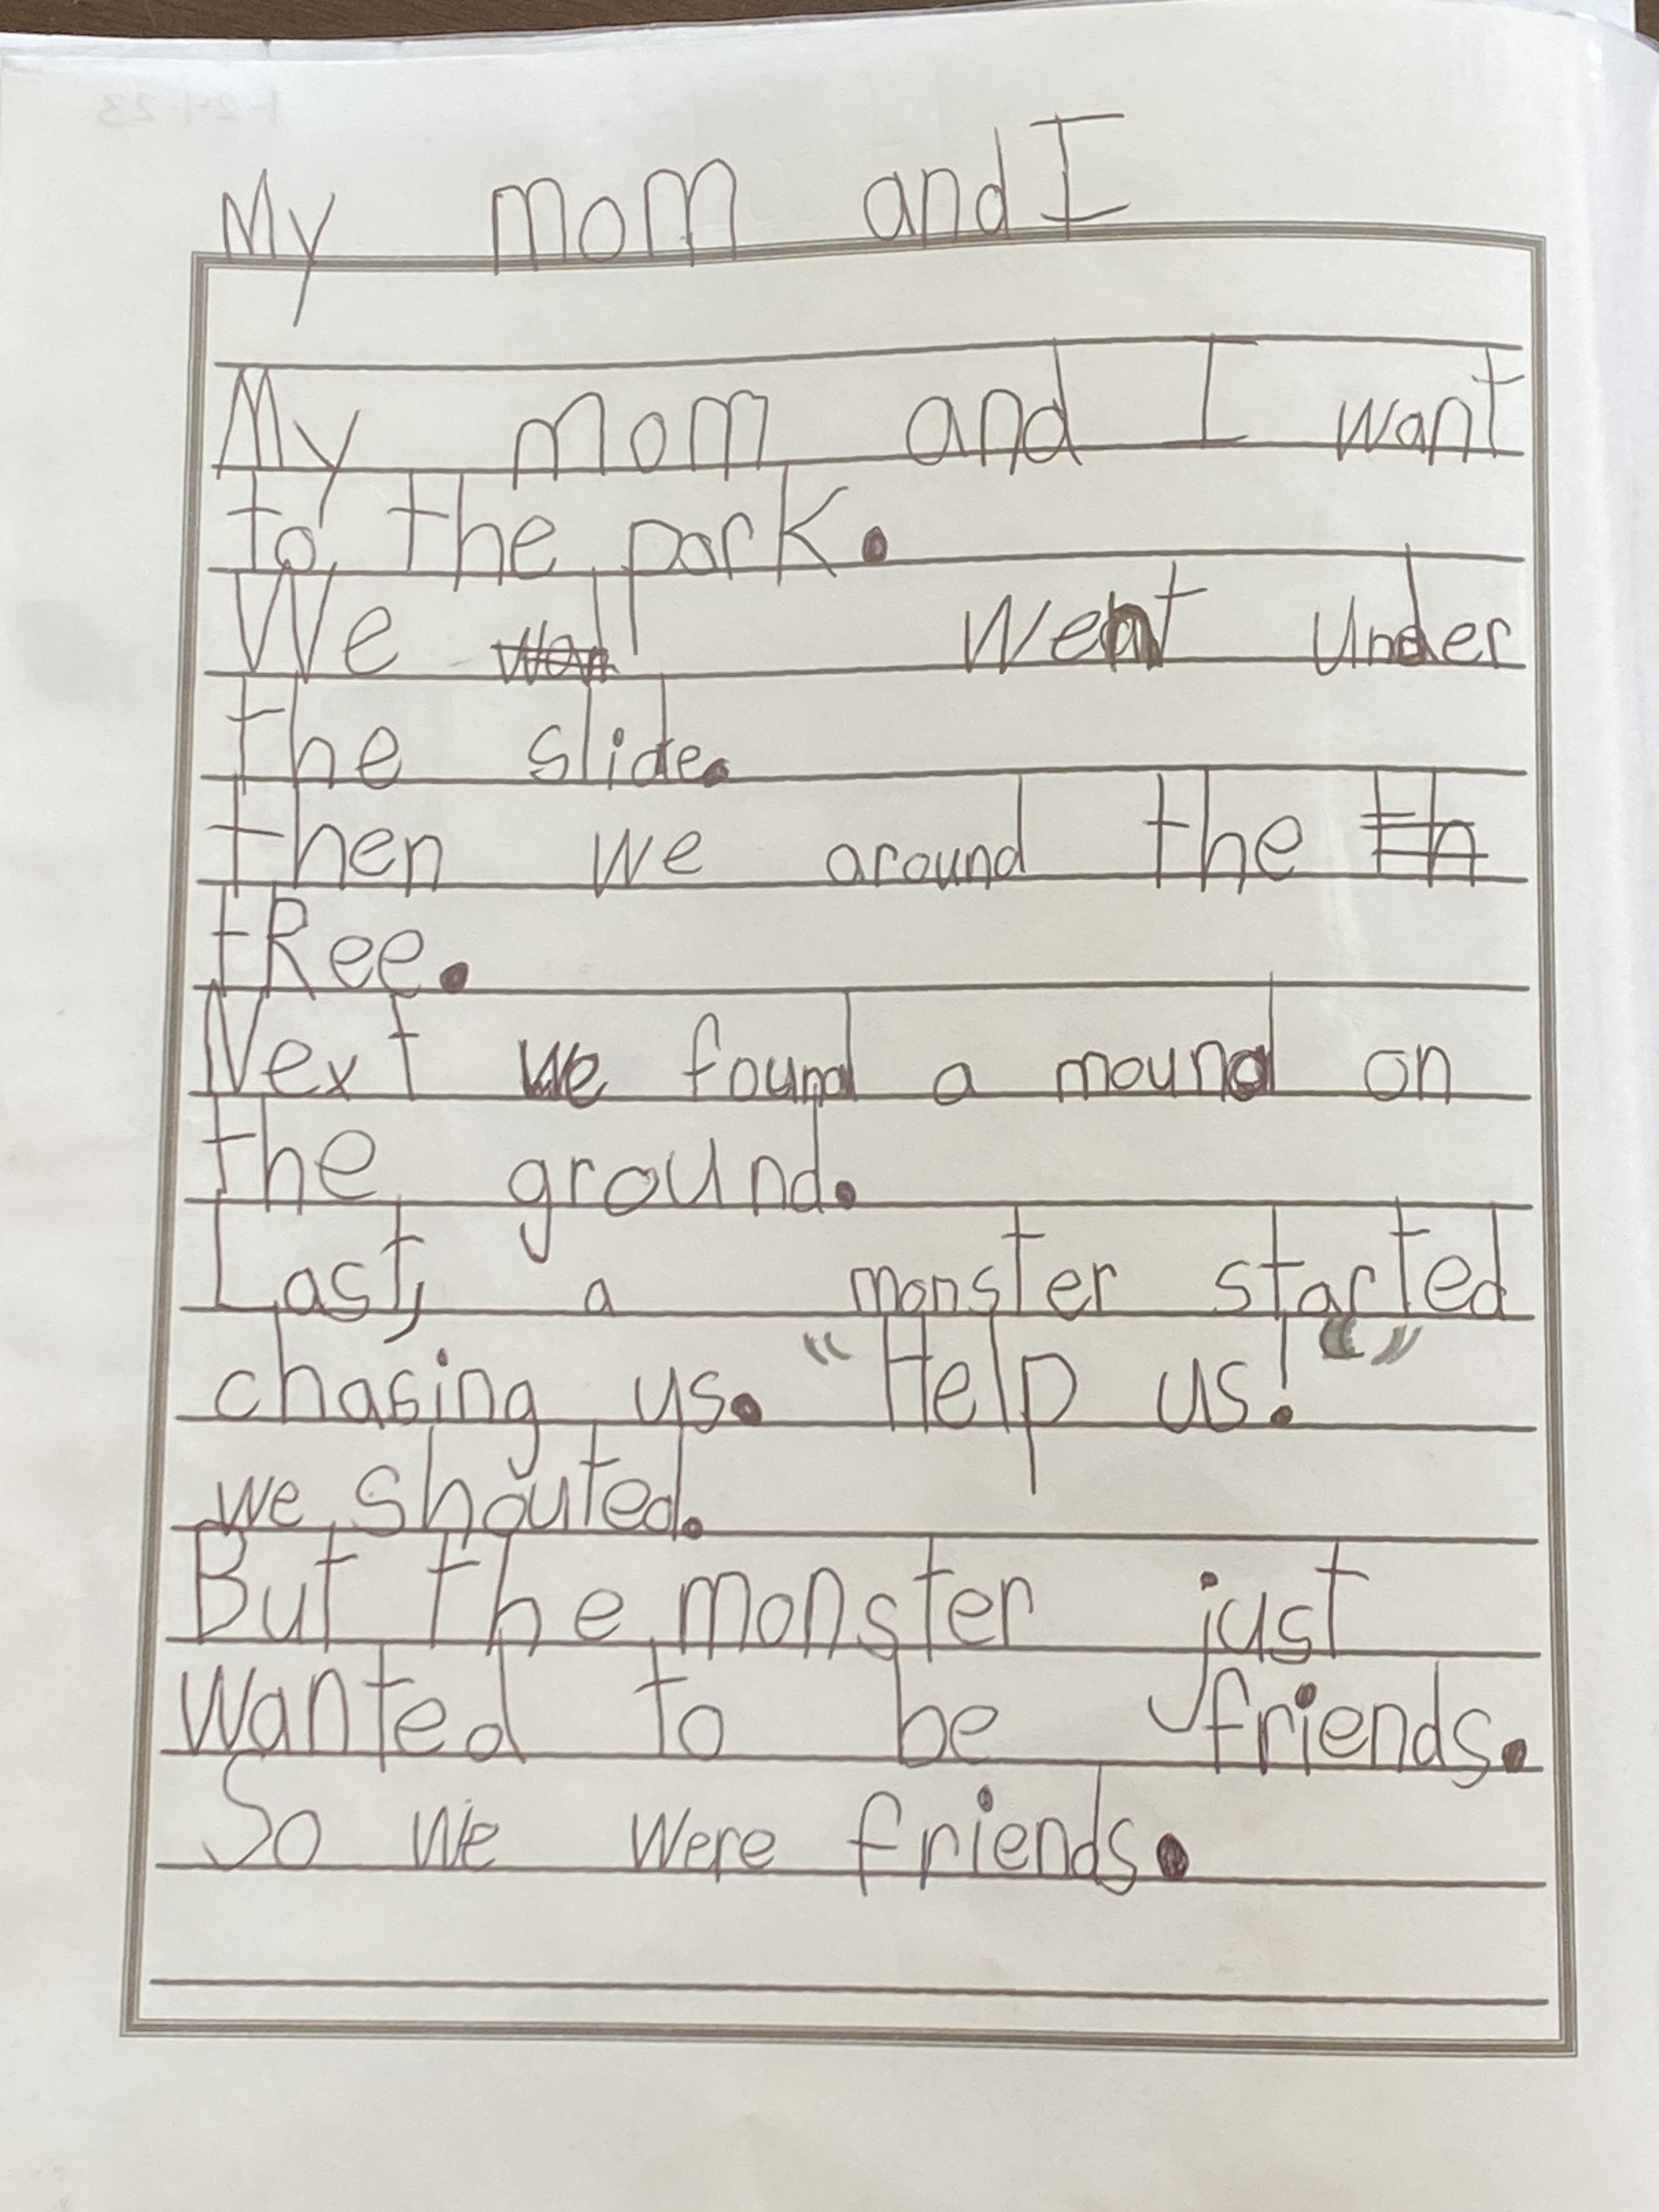 1-24-23
My mom and I
My mom and I want
to the park.
We wan went under
the slide.
then we around the th
tRee.
Next we found a mound on
the ground.
Last, a monster started
chasing us. "Help us!"
we shouted.
But the monster just
wanted to be friends.
So we were friends.